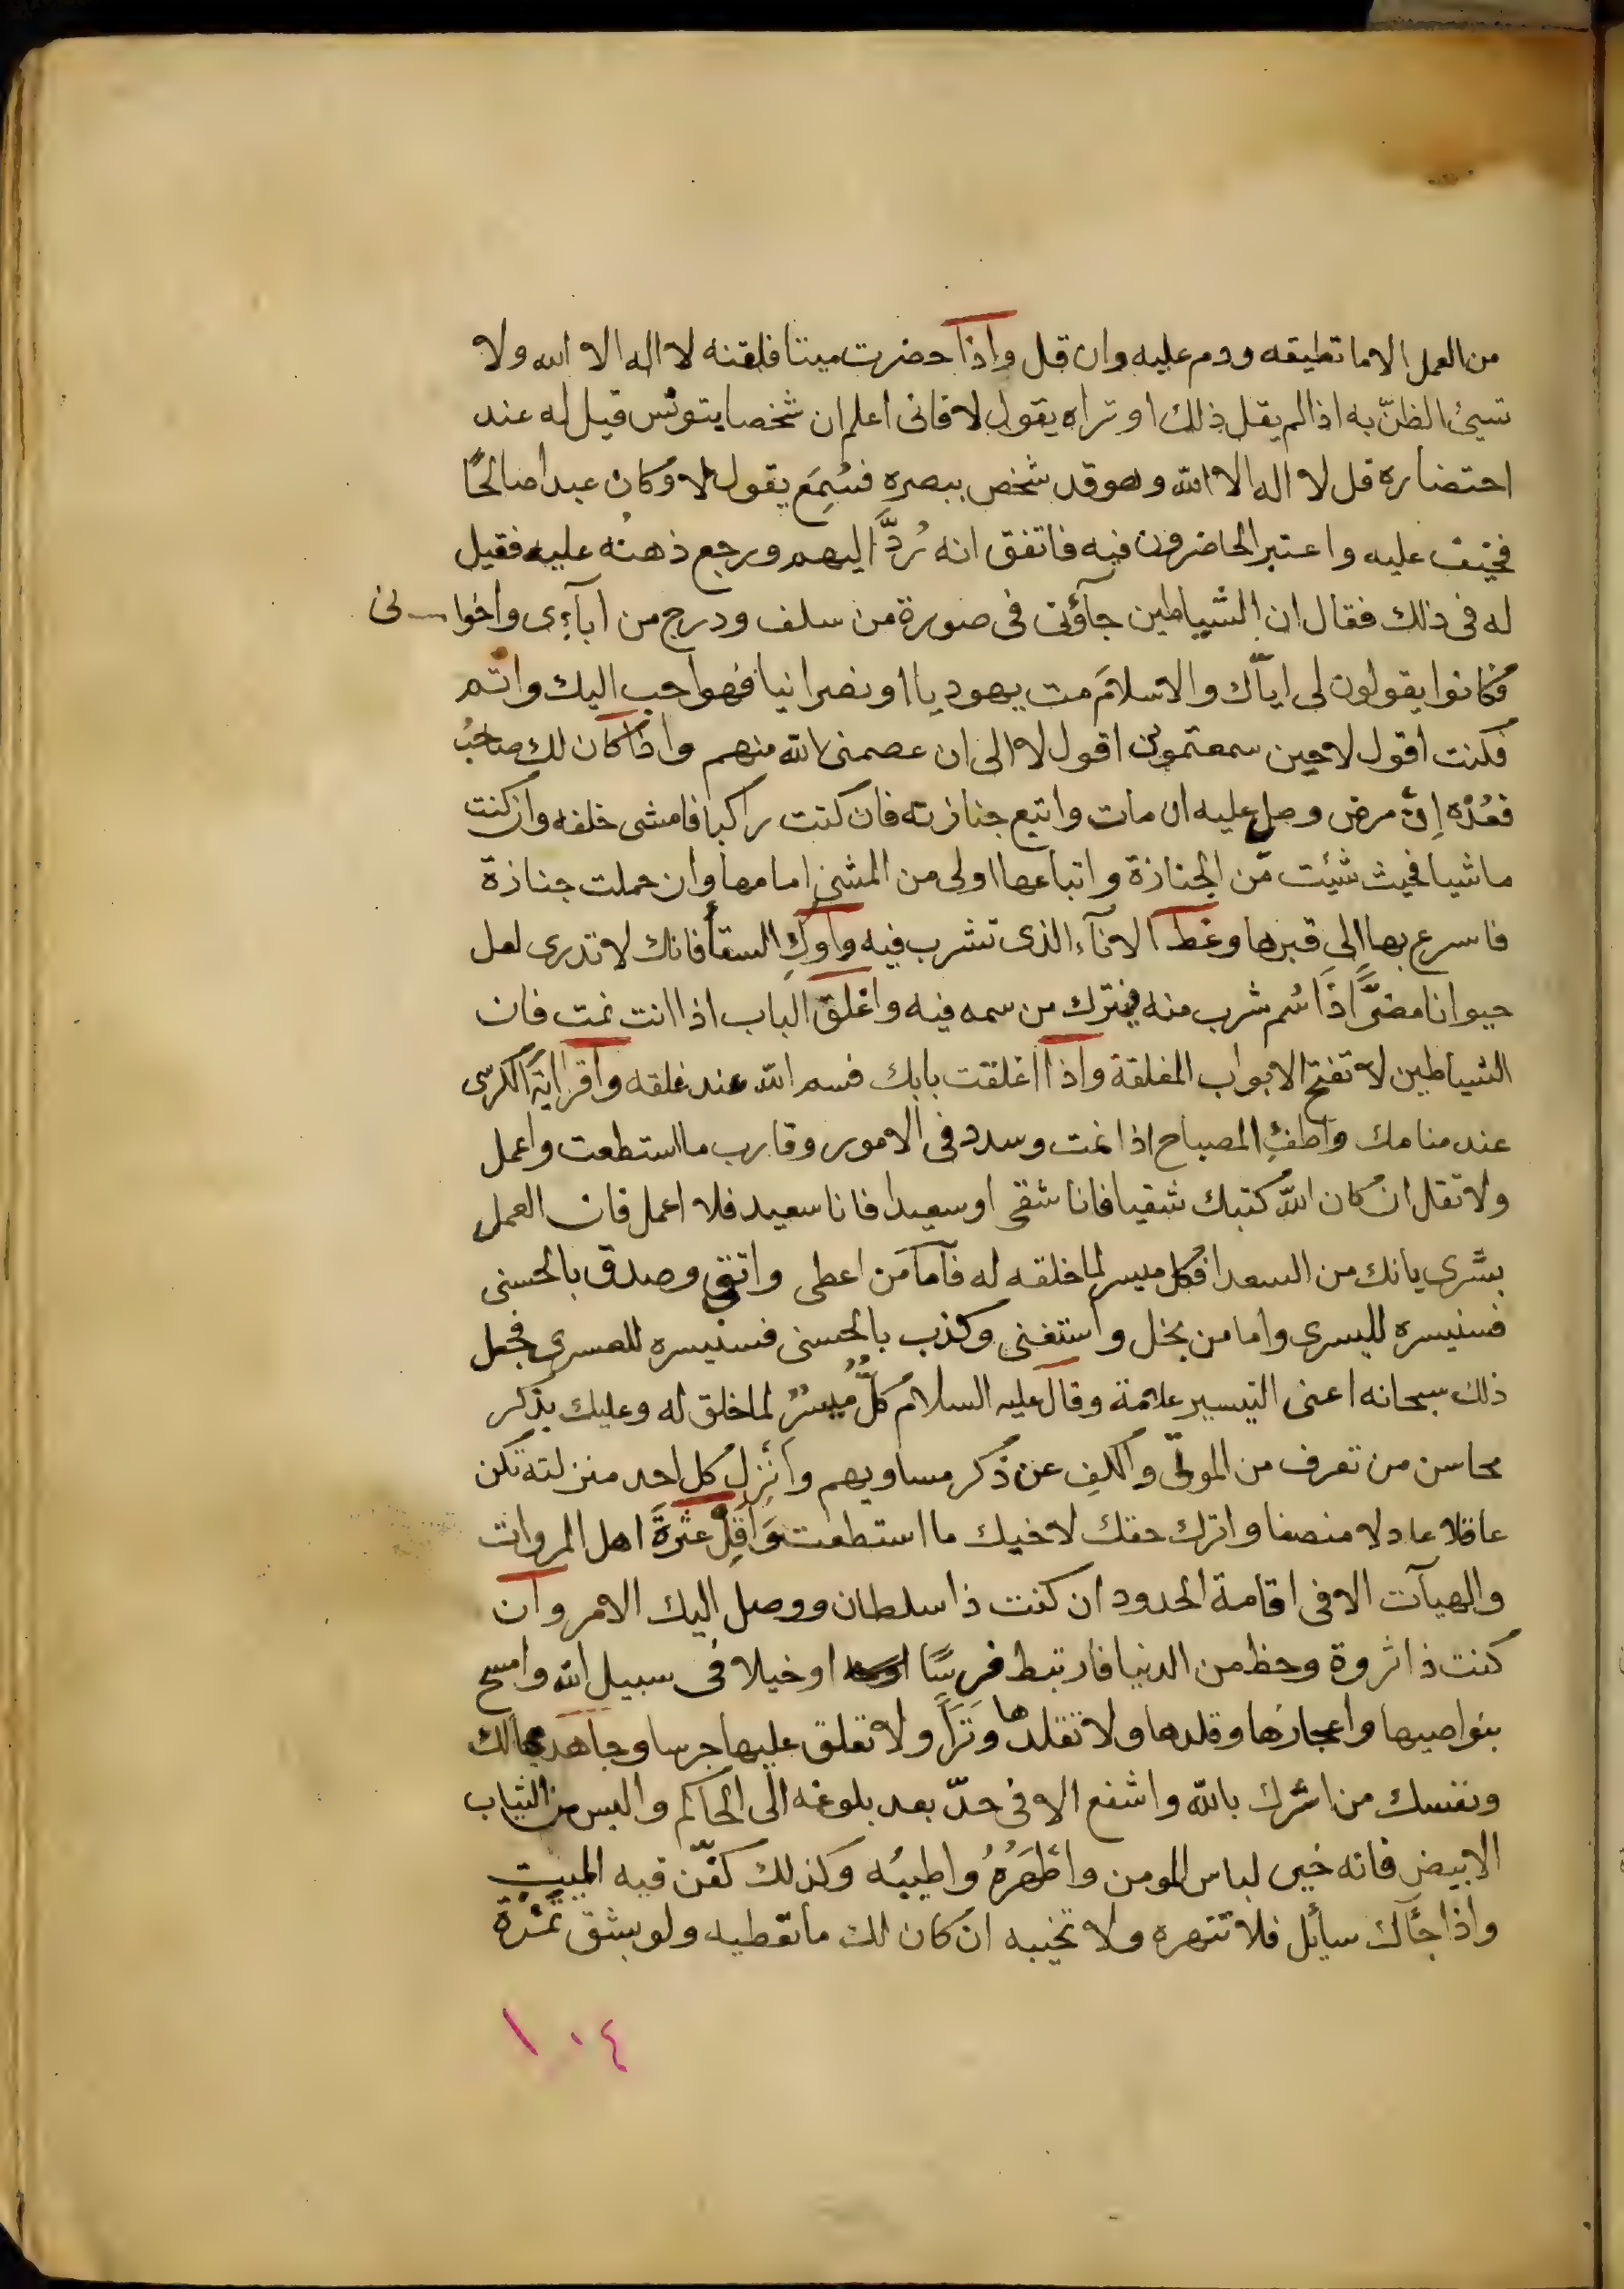 من العمل الا ما تطيقه ودم عليه وان قل واذا حضرت ميتا فلقنه لا اله الا الله ولا
تسيئ الظنّ به اذا لم يقل ذلك او تراه يقول لا فانى اعلم ان شخصا بتونس قيل له عند
احتضاره قل لا اله الا الله وهو قد شخص ببصره فسُمِعَ يقول لا وكان عبدا صالحًا
فخيف عليه واعتبر الحاضرون فيه فاتفق انه رُدَّ اليهم ورجع ذهنُه عليه فقيل
له فى ذلك فقال ان الشياطين جآؤنى فى صورة من سلف ودرج من آبآءى واخوانى
فكانوا يقولون لى اياك والاسلامَ مت يهوديا او نصرانيا فهو احب اليك وانتم
فكنت اقول لا حين سمعتمونى اقول لا الى ان عصمنى الله منهم واذا كان لك صاحبُ
فعُدْه إن مرض وصل عليه ان مات واتبع جنازته فان كنت راكبا فامشى خلفه وان كنت
ماشيا فحيث شئت من الجنازة واتباعها اولى من المشى امامها وان حملت جنازة
فاسرع بها الى قبرها وغط الانآء الذى تشرب فيه وأوكِ السقأ فانك لا تدرى لعل
حيوانا مضرًّا اذا سُم شرب منه فيترك من سمه فيه واغلق الباب اذا انت نمت فان
الشياطين لا تفتح الابواب المغلقة واذا اغلقت بابك فسم الله عند غلقه واقرا اية الكرسى
عند منامك واطفِ المصباح اذا نمت وسدد فى الامور وقارب ما استطعت واعمل
ولا تقل ان كان الله كتبك شقيا فانا شقى او سعيدا فانا سعيد فلا اعمل فان العمل
بشرى بانك من السعدا فكل ميسر لما خلقه له فأما من اعطى واتقى وصدق بالحسنى
فسنيسره لليسرى واما من بخل واستغنى وكذب بالحسنى فسنيسره للعسرى فجعل
ذلك سبحانه اعنى التيسير علامة وقال عليه السلام كلٌّ ميسرٌ لما خلق له وعليك بذكر
محاسن من تعرف من الموتى واكفف عن ذكر مساويهم وأنزِل كل احد منزلته تكن
عاقلا عادلا منصفا واترك حقك لاخيك ما استطعت وَأَقِلْ عثرةَ اهل المروات
والهيآت الا فى اقامة الحدود ان كنت ذا سلطان ووصل اليك الامر وان
كنت ذا ثروة وحظ من الدنيا فارتبط فرسًا او خيلا فى سبيل الله وامسح
بنواصيها واعجازها وقلدها ولا تقلدها وَتَرًا ولا تعلق عليها جرسا وجاهد بمالك
ونفسك من اشرك بالله واشفع الا فى حدّ بعد بلوغه الى الحاكم والبس من الثياب
الابيض فانه خير لباس المومن واطهَرُهُ واطيبُه وكذلك كفّن فيه الميت
واذا جآك سايل فلا تنهره ولا تخيبه ان كان لك ما تعطيه ولو بشق تمرة
١٠٤